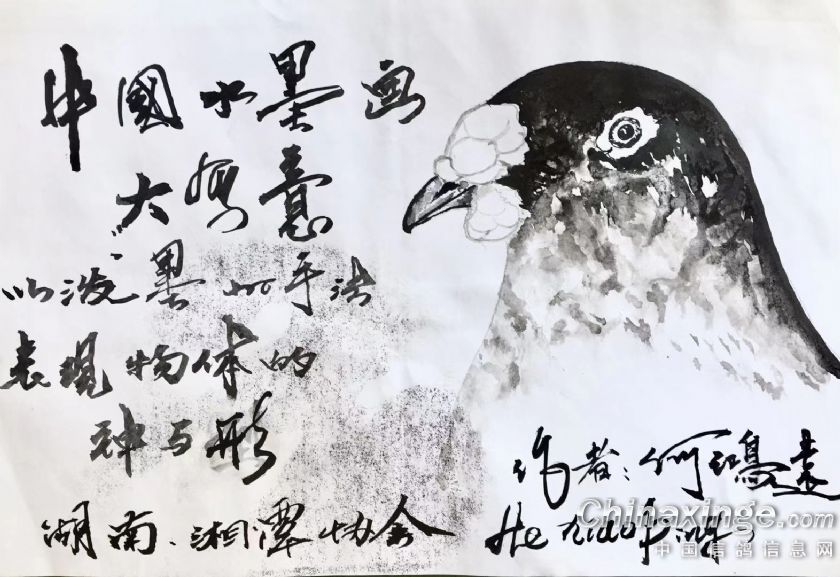 中國水墨画
大写意
以“泼”墨的手法
表现物体的
神与形
湖南.湘潭协会
作者:何鸿
He
Chinaxinge.com
中国信鸽信息网